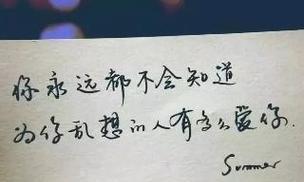 你永远都不会知道
为你乱想的人有多么爱你.
Summer